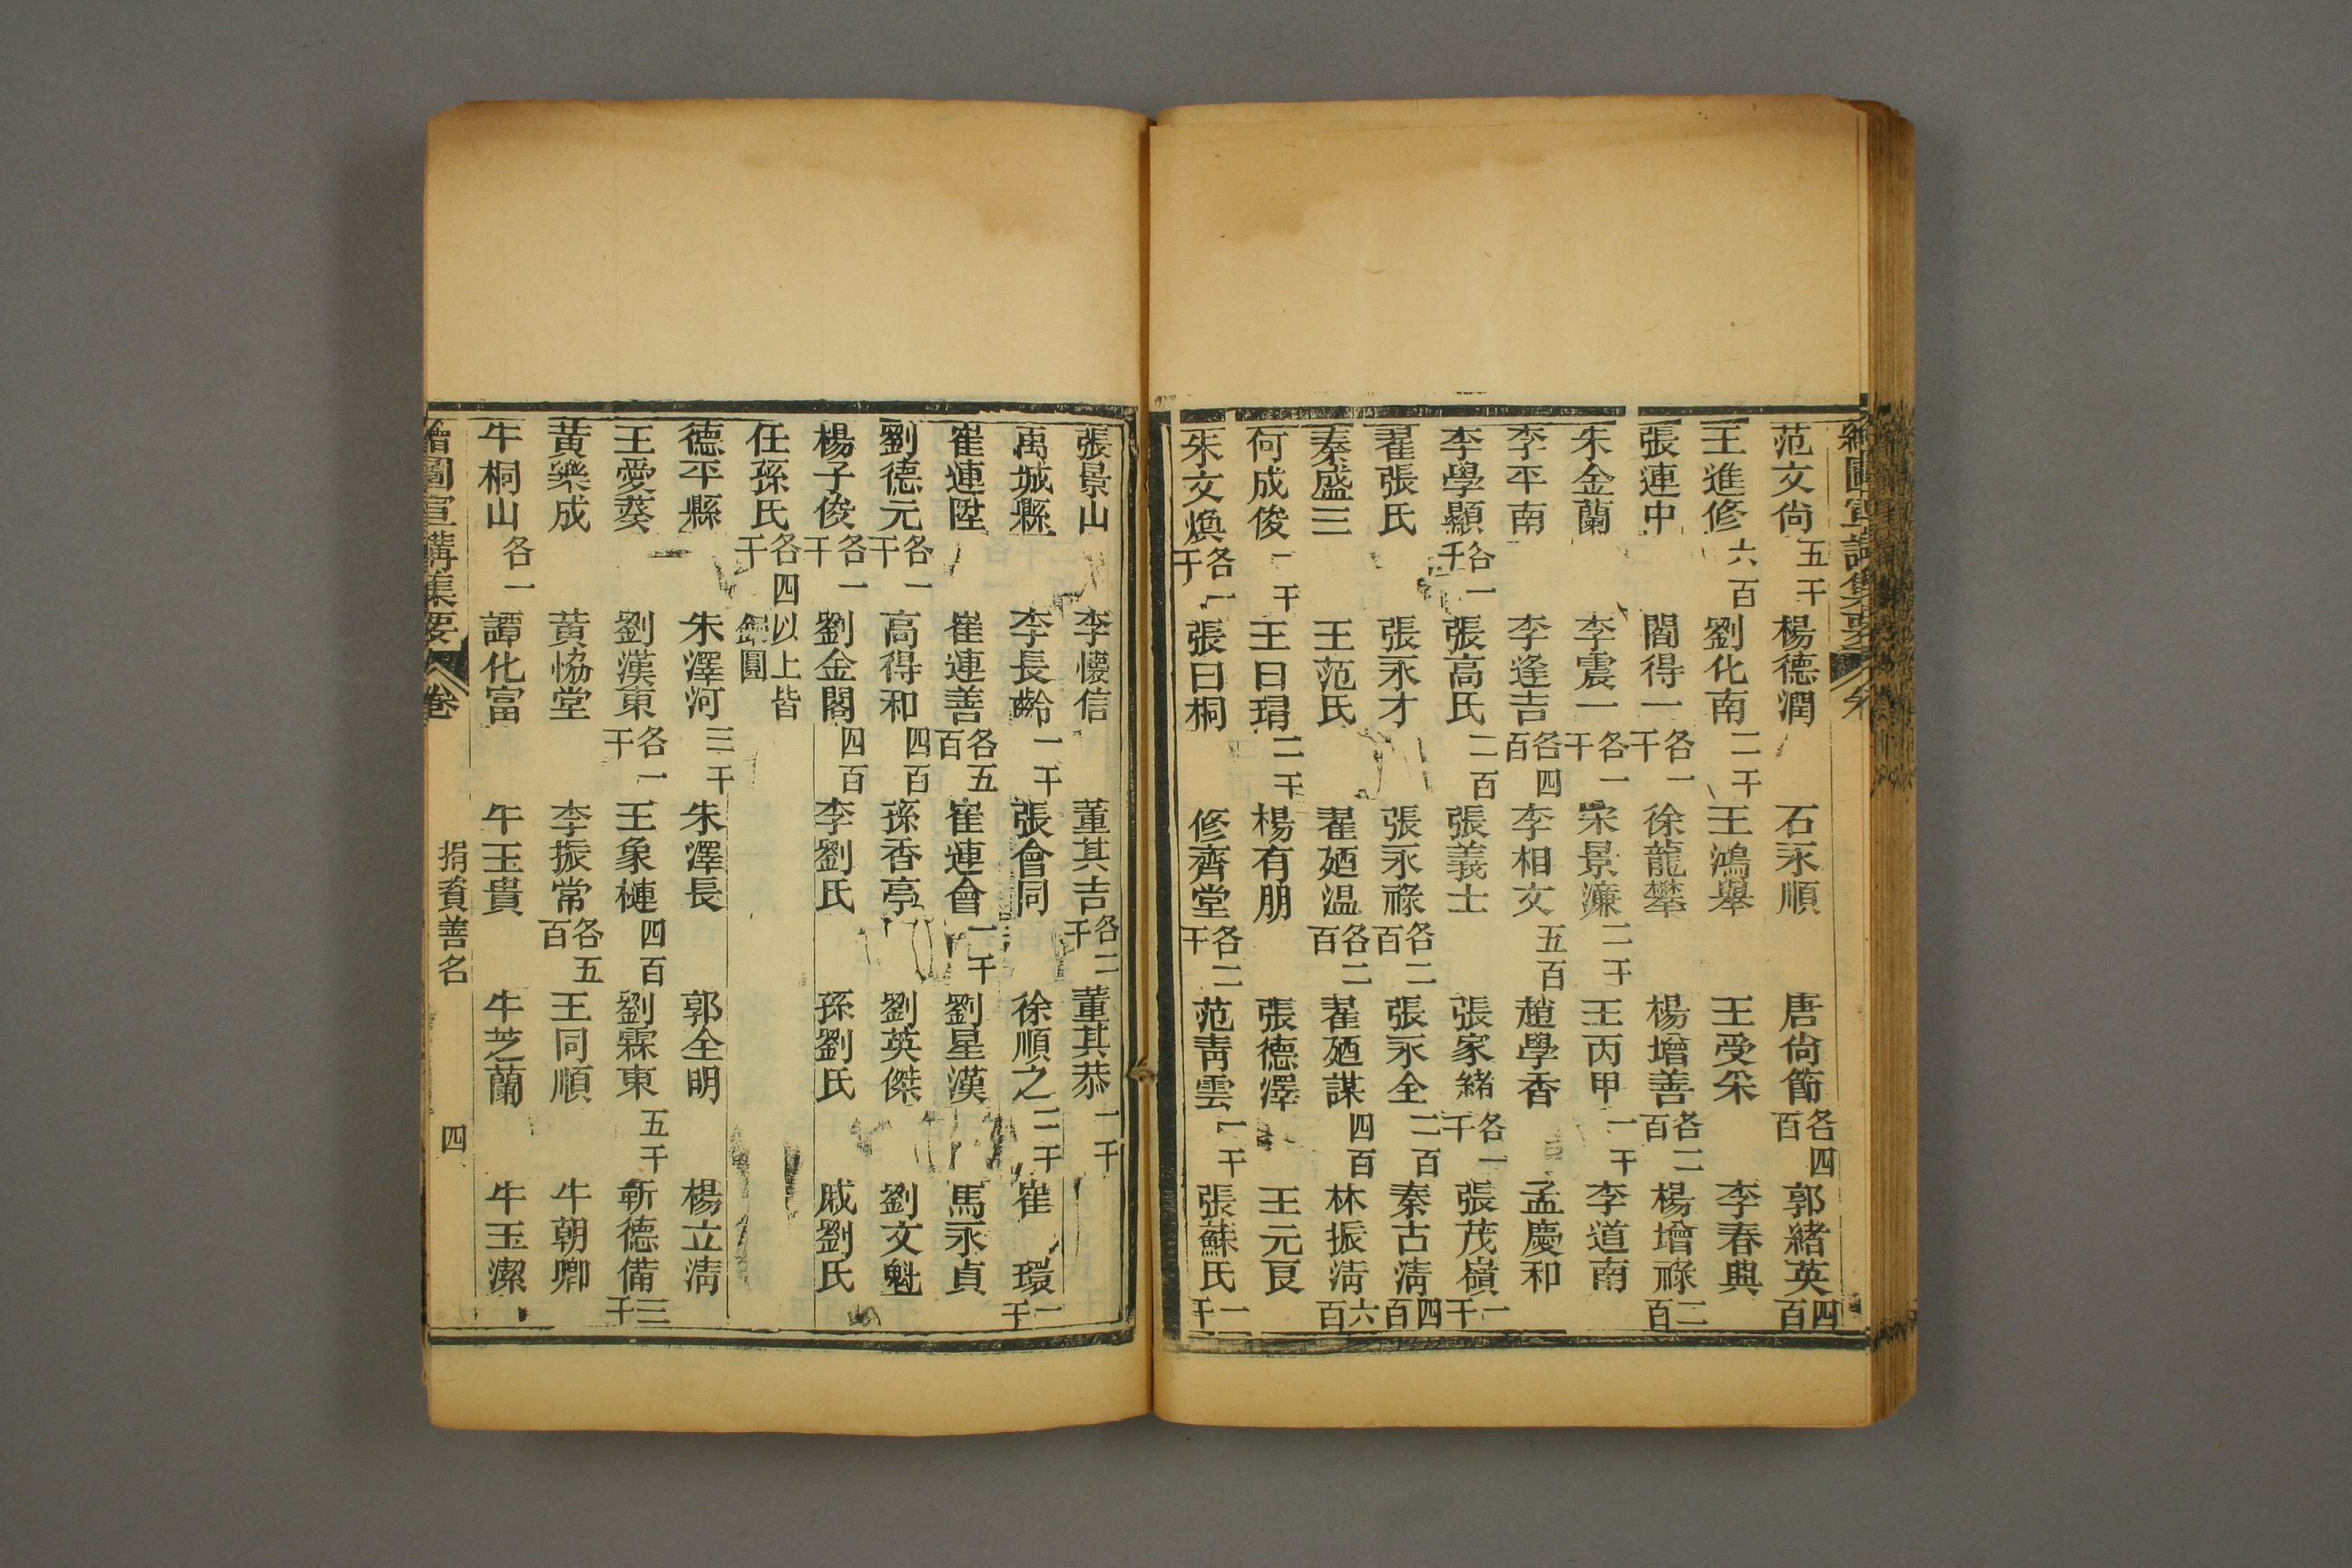 繪圖宣講集要 卷
范文尙 五千 楊德潤 石永順 唐尙節 各四百 郭緒英 四百
王進修 六百 劉化南 二千 王鴻舉 王受采 李春典
張連中 閻得一 各一千 徐龍攀 楊增善 各二百 楊增祿 二百
朱金蘭 李震一 各一千 宋景濂 二千 王丙甲 一千 李道南
李平南 李逢吉 各四百 李相文 五百 趙學香 孟慶和
李學顯 各一千 張高氏 二百 張義士 張家緒 各一千 張茂嶺 一千
翟張氏 張永才 張永祿 各二百 張永全 二百 秦古淸 四百
秦盛三 王范氏 翟廼温 各二百 翟廼謀 四百 林振淸 六百
何成俊 一千 王曰琄 二千 楊有朋 張德澤 王元良
朱文煥 各一千 張曰桐 修齊堂 各二千 范靑雲 一千 張蘇氏 一千
張景山 李懷信 董其吉 各二千 董其恭 一千
禹城縣 李長齡 一千 張會同 徐順之 二千 崔環 一千
崔連陞 崔連善 各五百 崔連會 一千 劉星漢 馬永貞
劉德元 各一千 高得和 四百 孫香亭 劉英傑 劉文魁
楊子俊 各一千 劉金閣 四百 李劉氏 孫劉氏 戚劉氏
任孫氏 各四千 以上皆銀圓
德平縣 朱澤河 三千 朱澤長 郭全明 楊立淸
王愛葵 劉漢東 各一千 王象槤 四百 劉霖東 五千 靳德備 三千
黃樂成 黃恊堂 李振常 各五百 王同順 牛朝卿
牛桐山 各一 譚化富 牛玉貴 牛芝蘭 牛玉潔
繪圖宣講集要 卷 捐貲善名 四